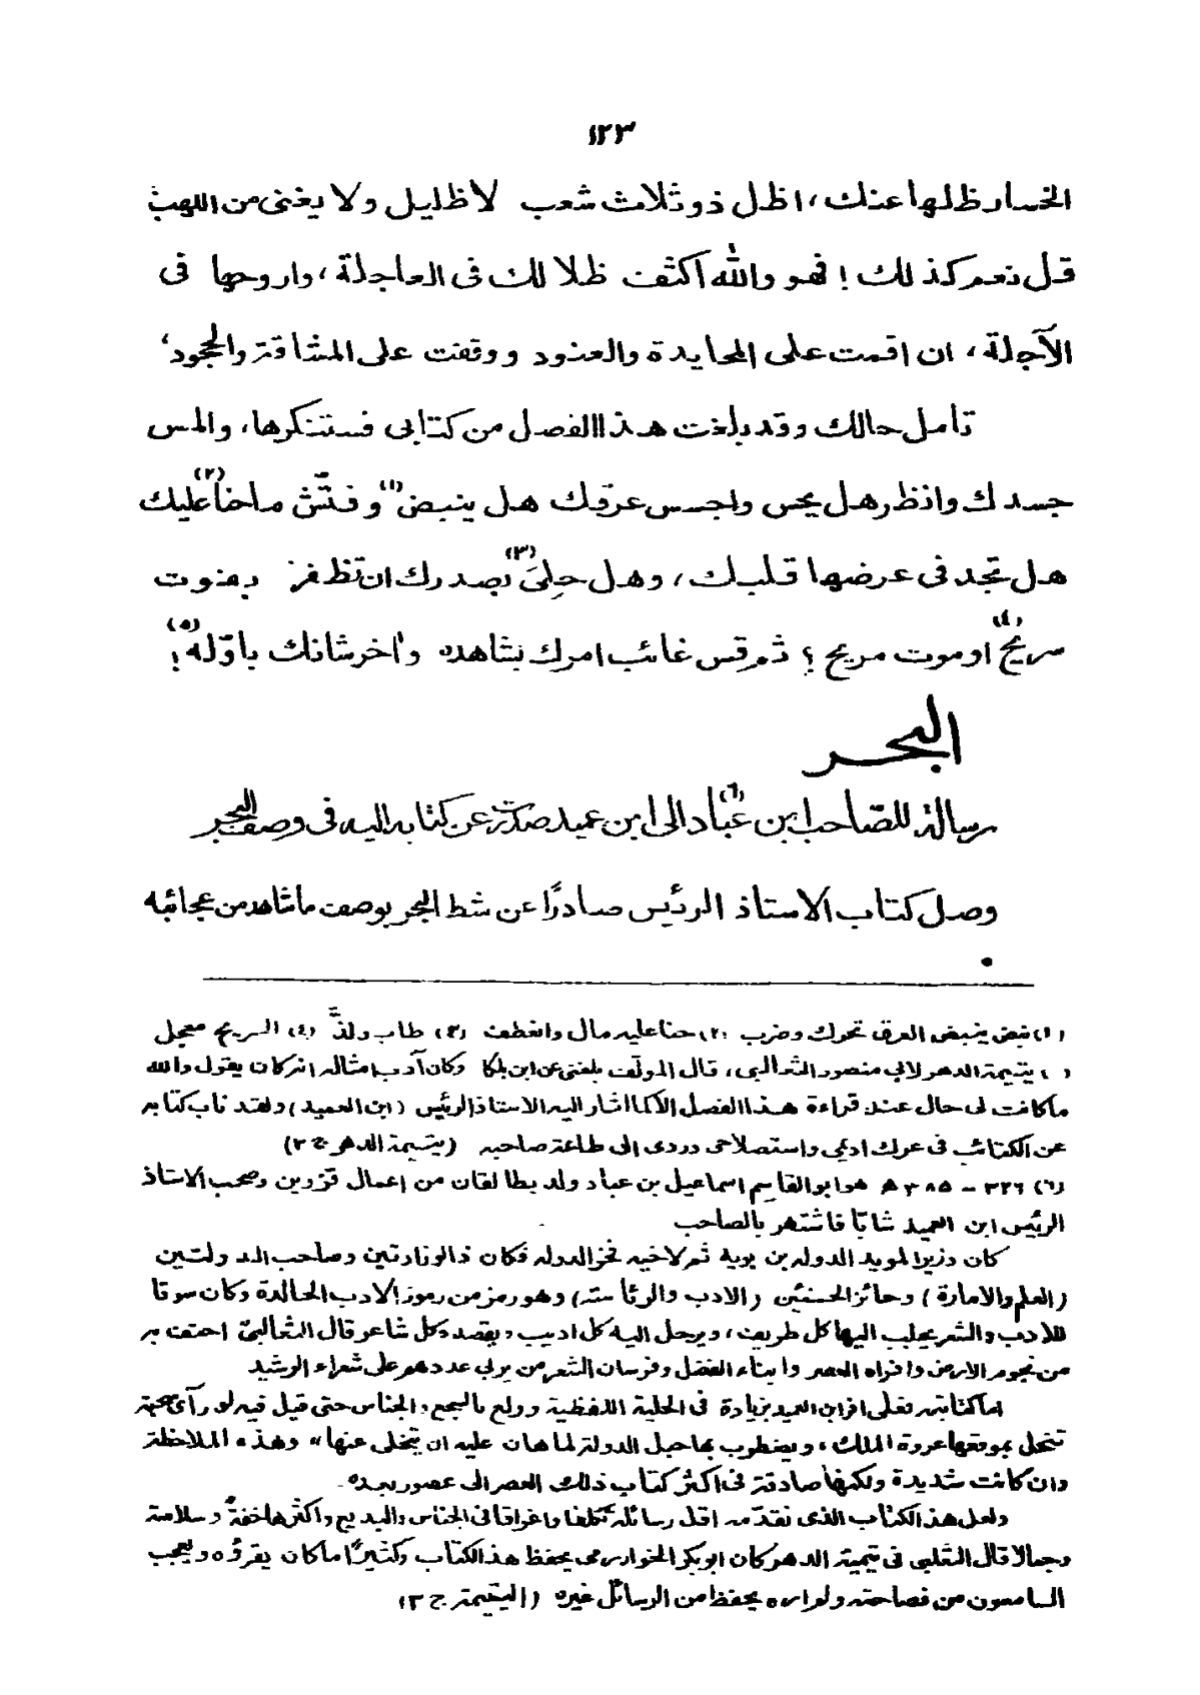 ١٢٣
الخسار ظلها عنك، اظل ذو ثلاث شعب لا ظليل ولا يغنى من اللهب
قل نعم كذلك! فهو والله اكثف ظلا لك فى العاجلة، واروحها فى
الآجلة، ان اقمت على المحايدة والعنود ووقفت على المشاقة والجحود،
تأمل حالك وقد بلغت هذا الفصل من كتابى فستنكرها، والمس
جسدك وانظر هل يحس واجسس عرقك هل ينبض (١) وفتّش ما حنا (٢) عليك
هل تجد فى عرضها قلبك، وهل حلِىَ (٣) بصدرك ان تظفر بموت
سريح (٤) او موت مريح؟ ثم قس غائب امرك بشاهده وآخر شانك باوّله (٥)!
البحر
رسالة للصّاحب ابن عبّاد (٦) الى ابن عميد صدرت عن كتابه اليه فى وصف البحر
وصل كتاب الاستاذ الرئيس صادرًا عن شط البحر بوصف ما شاهد من عجائبه
(١) نبض ينبض العرق تحرك وضرب (٢) حنا عليه مال وانعطف (٣) طاب ولذّ (٤) السريح معجل
( ) يتيمة الدهر لابي منصور الثعالبي، قال المولف بلغنى عن ابن بلكا وكان آدب امثاله انه كان يقول والله
ما كانت لى حال عند قراءة هذا الفصل الا كما اشار اليه الاستاذ الرئيس (ابن العميد) ولقد ناب كتابه
عن الكتائب فى عرك اديمى واستصلاحى وردى الى طاعة صاحبه (يتيمة الدهر ج ٣)
(٦) ٣٢٦ - ٣٨٥ هـ هو ابوالقاسم اسماعيل بن عباد ولد بطالقان من اعمال قزوين وصحب الاستاذ
الرئيس ابن العميد شابّا فاشتهر بالصاحب
كان وزيرا لمويد الدوله بن بوية ثم لاخيه فخر الدوله فكان ذا لوزارتين وصاحب الدولتين
(العلم والامارة) وحائز الحسنيين (الادب والرئاسة) وهو رمز من رموز الادب الخالدة وكان سوقا
للادب والشعر يجلب اليها كل طريف، ويرحل اليه كل اديب ويقصده كل شاعر قال الثعالبىّ احتف به
من نجوم الارض وافراد العصر وابناء الفضل وفرسان الشعر من يربي عددهم على شعراء الرشيد
اما كتابته فعلى اثر ابن العميد بزيادة فى الحلية اللفظية وولع بالسجع والجناس حتى قيل فيه لو رآى سجعة
تنحل بموقعها عروة الملك، ويضطرب بها حبل الدولة لما هان عليه ان يتخلى عنها" وهذه الملاحظة
وان كانت شديدة ولكنها صادقة فى اكثر كتاب ذلك العصر الى عصور بعده.
ولعل هذ الكتاب الذى نقدّمه اقل رسائله تكلفا واغراقا فى الجناس والبديع واكثرها خفةً وسلامة
وجمالا قال الثعلبى فى يتيمة الدهر كان ابوبكر الخوارزمى يحفظ هذ الكتاب وكثيرًا ما كان يقرؤه ويعجب
السامعون من فصاحته ولم اره يحفظ من الرسائل غيره (اليتيمة ج ٣)